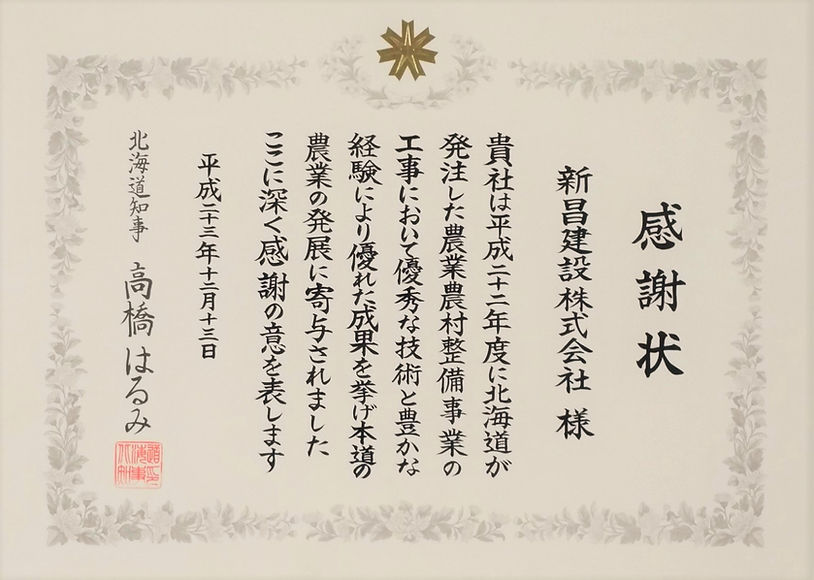 感謝状
新昌建設株式会社 様
貴社は平成二十二年度に北海道が
発注した農業農村整備事業の
工事において優秀な技術と豊かな
経験により優れた成果を挙げ本道の
農業の発展に寄与されました
ここに深く感謝の意を表します
平成二十三年十二月十三日
北海道知事 高橋はるみ